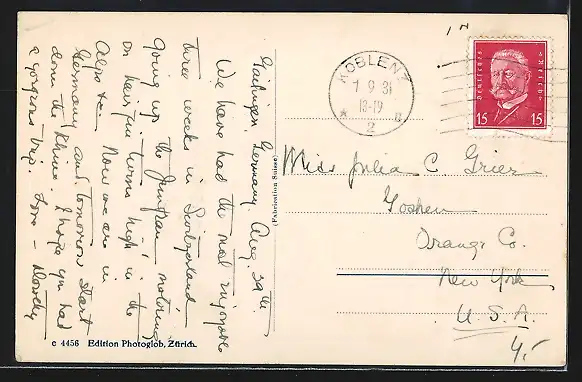 Germany, Aug. 29th
We have had the most enjoyable
three weeks in Switzerland
going up the Jungfrau, motoring
on hairpin turns high in the
Alps etc. Now we are in
Germany and tomorrow start
down the Rhine. I hope you had
a gorgeous trip. Love - Dorothy
c 4456 Edition Photoglob, Zürich.
(Fabrication Suisse)
KOBLENZ
1 9 31
18-19
* 2 a
DEUTSCHES REICH
15 15
Miss Julia C Grier
Goshen
Orange Co.
New York
U. S. A.
4,-